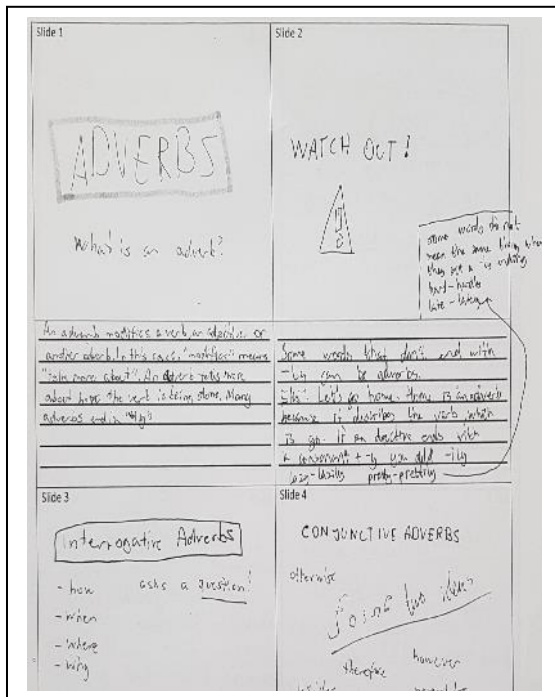 Slide 1
ADVERBS
What is an adverb?
An adverb modifies a verb, an adjective or
another adverb. In this case, "modifies" means
"tells more about". An adverb tells more
about how the verb is being done. Many
adverbs end in "-ly"
Slide 2
WATCH OUT!
some words do not
mean the same thing when
they get a -ly ending
hard-hardly
late-lately
Some words that don't end with
-ly can be adverbs.
Let's go home. Home is an adverb
because it describes the verb which
is go. If an adjective ends with
a consonant + -y you add -ily
lazy-lazily pretty-prettily
Slide 3
Interrogative Adverbs
- how asks a question!
- when
- where
- why
Slide 4
CONJUNCTIVE ADVERBS
otherwise
Joins two ideas
therefore however